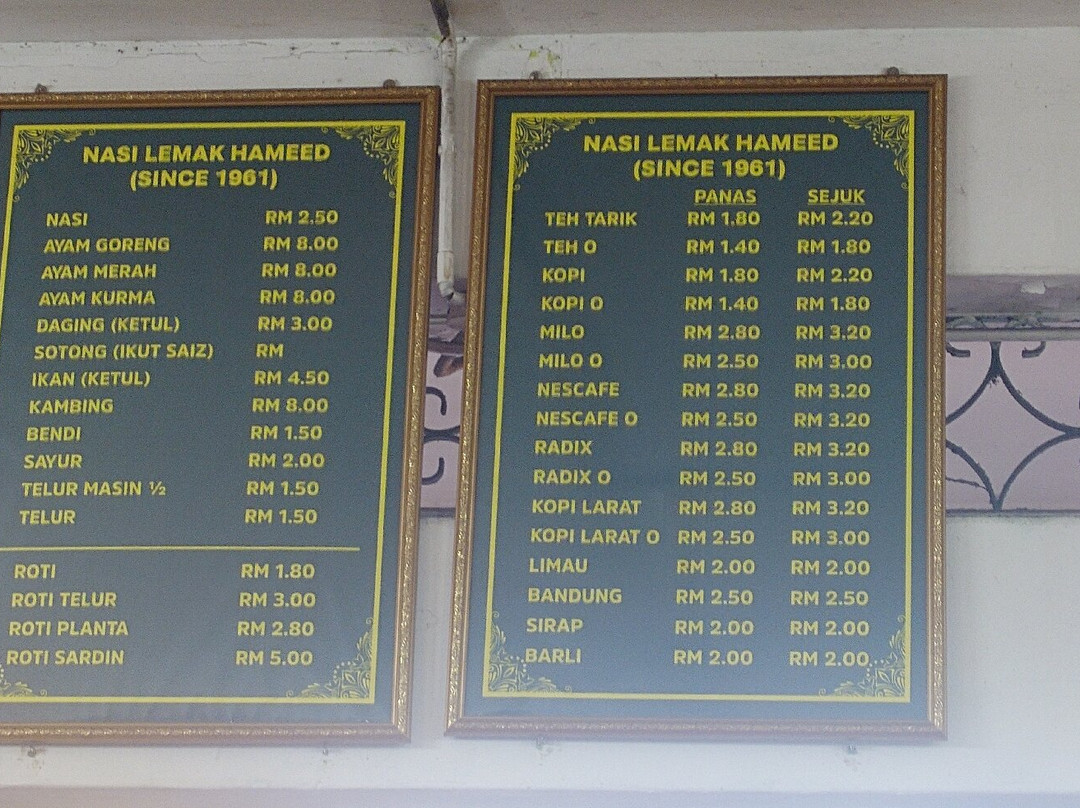 NASI LEMAK HAMEED
(SINCE 1961)
NASI RM 2.50
AYAM GORENG RM 8.00
AYAM MERAH RM 8.00
AYAM KURMA RM 8.00
DAGING (KETUL) RM 3.00
SOTONG (IKUT SAIZ) RM
IKAN (KETUL) RM 4.50
KAMBING RM 8.00
BENDI RM 1.50
SAYUR RM 2.00
TELUR MASIN ½ RM 1.50
TELUR RM 1.50
ROTI RM 1.80
ROTI TELUR RM 3.00
ROTI PLANTA RM 2.80
ROTI SARDIN RM 5.00
NASI LEMAK HAMEED
(SINCE 1961)
PANAS SEJUK
TEH TARIK RM 1.80 RM 2.20
TEH O RM 1.40 RM 1.80
KOPI RM 1.80 RM 2.20
KOPI O RM 1.40 RM 1.80
MILO RM 2.80 RM 3.20
MILO O RM 2.50 RM 3.00
NESCAFE RM 2.80 RM 3.20
NESCAFE O RM 2.50 RM 3.20
RADIX RM 2.80 RM 3.20
RADIX O RM 2.50 RM 3.00
KOPI LARAT RM 2.80 RM 3.20
KOPI LARAT O RM 2.50 RM 3.00
LIMAU RM 2.00 RM 2.00
BANDUNG RM 2.50 RM 2.50
SIRAP RM 2.00 RM 2.00
BARLI RM 2.00 RM 2.00